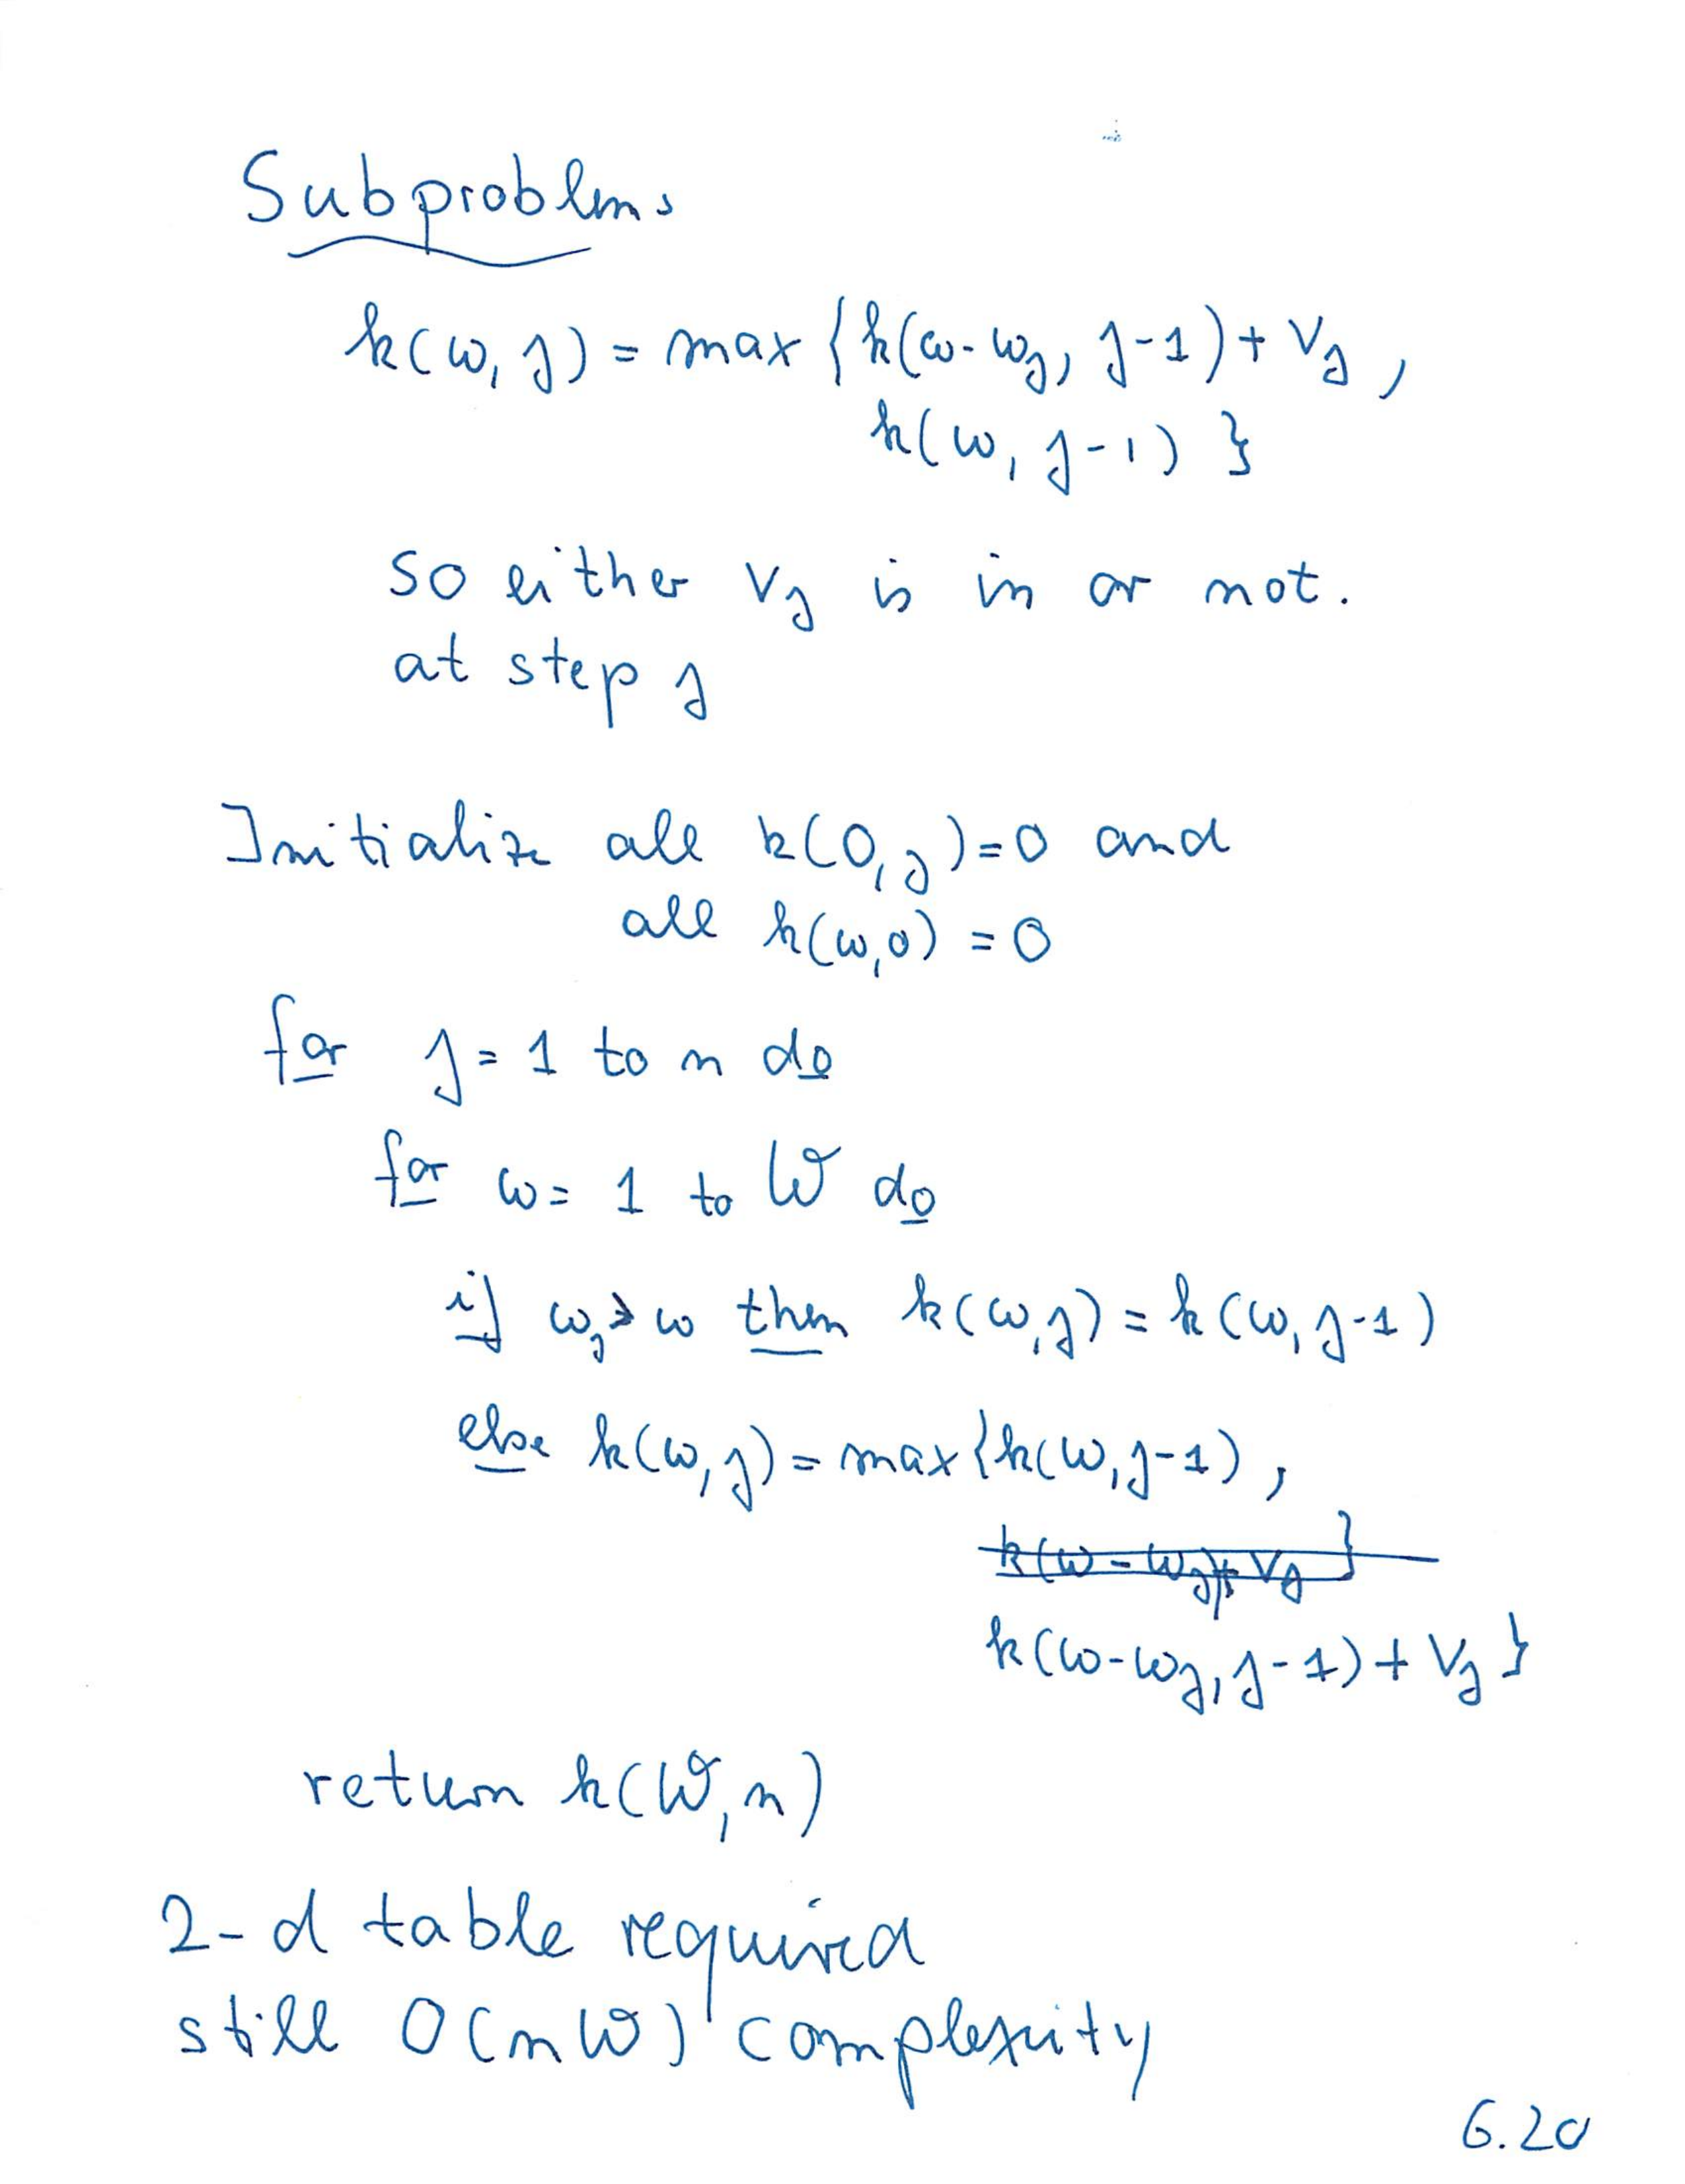 Subproblems
k(w, j) = max { k(w-wj, j-1) + vj ,
k(w, j-1) }
so either vj is in or not.
at step j
Initialize all k(0, j)=0 and
all k(w,0) = 0
for j = 1 to n do
for w = 1 to W do
if wj > w then k(w,j) = k(w, j-1)
else k(w, j) = max {k(w, j-1) ,
k(w - wj)+ vj }
k(w-wj, j-1) + vj }
return k(W, n)
2-d table required
still O(nW) complexity
6.20